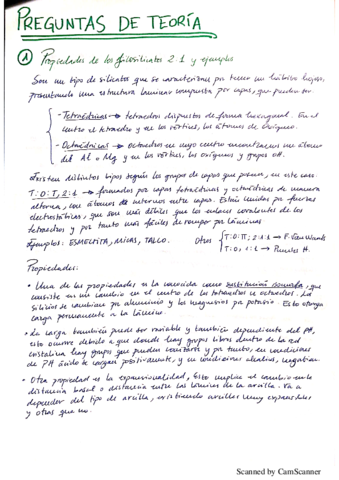 PREGUNTAS DE TEORÍA
① Propiedades de los filosilicatos 2:1 y ejemplos
Son un tipo de silicatos que se caracterizan por tener un hábito
presentando una estructura laminar compuesta por capas, que pueden ser
- Tetraédricas → tetraedros dispuestos de forma hexagonal. En el
centro el tetraedro y en los vértices, los átomos de oxígeno.
- Octaédricas → octaedros en cuyo centro encontramos un átomo
del Al o Mg y en los vértices, los oxígenos y grupos OH.
Existen distintos tipos según los grupos de capas que posean, en este caso
T:O:T, 2:1 → formados por capas tetraédricas y octaédricas de manera
alterna, con átomos de internos entre capas. Están unidos por fuerzas
electrostáticas, que son más débiles que los enlaces covalentes de los
tetraedros y por tanto más fáciles de romper por láminas
Ejemplos: ESMECTITA, MICAS, TALCO. Otros
T:O, 1:1 → Puentes H.
Propiedades:
• Una de las propiedades es la conocida como sustitución isomorfa, que
consiste en un cambio en el centro de los tetraedros u octaedros. La
silicios se cambian por aluminio y los magnesios por potasio. Esto otorga
carga permanente a la lámina.
• La carga también puede ser variable y también dependiente del PH,
esto ocurre debido a que donde hay grupos libres dentro de la red
cristalina hay grupos que pueden ionizarse y por tanto, en condiciones
de PH ácido se cargan positivamente, y en condiciones alcalinas, negativas.
• Otra propiedad es la expansionalidad, Esto implica el cambio en la
distancia basal o distancia entre las láminas de la arcilla. Va a
depender del tipo de arcilla, existiendo arcillas muy expandibles
y otras que no.
Scanned by CamScanner